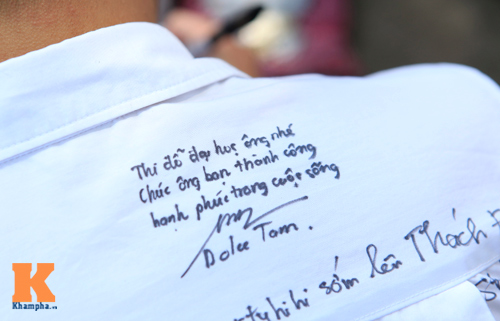 Thi đỗ đại học ông nhé
Chúc ông bạn thành công
hạnh phúc trong cuộc sống
Dolce Tam.
hi hi sớm lên Thách
K
Khampha.vn